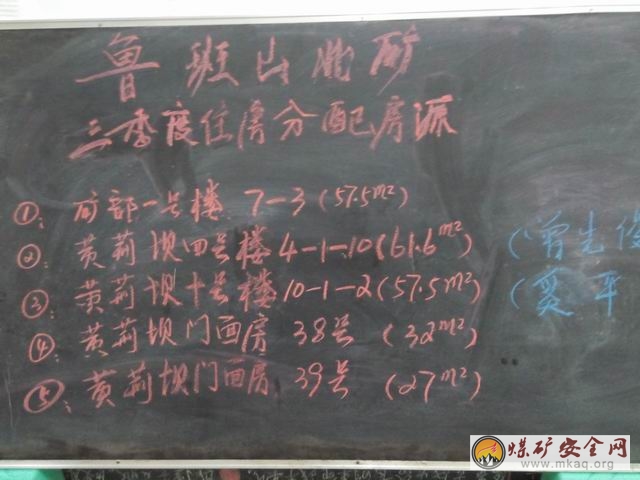 鲁班山北矿
三季度住房分配房源
①：府部一号楼 7-3(57.5m²)
②：黄荊坝四号楼 4-1-10(61.6m²) (曾先
③：黄荊坝十号楼 10-1-2(57.5m²) (奕平
④：黄荊坝门面房 38号 (32m²)
⑤：黄荊坝门面房 39号 (27m²)
煤矿安全网
www.mkaq.org